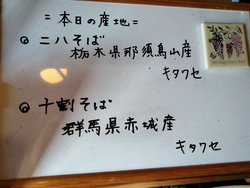 =本日の産地=
◎ 二八そば
栃木県那須烏山産
キタワセ
◎ 十割そば
群馬県赤城産
キタワセ